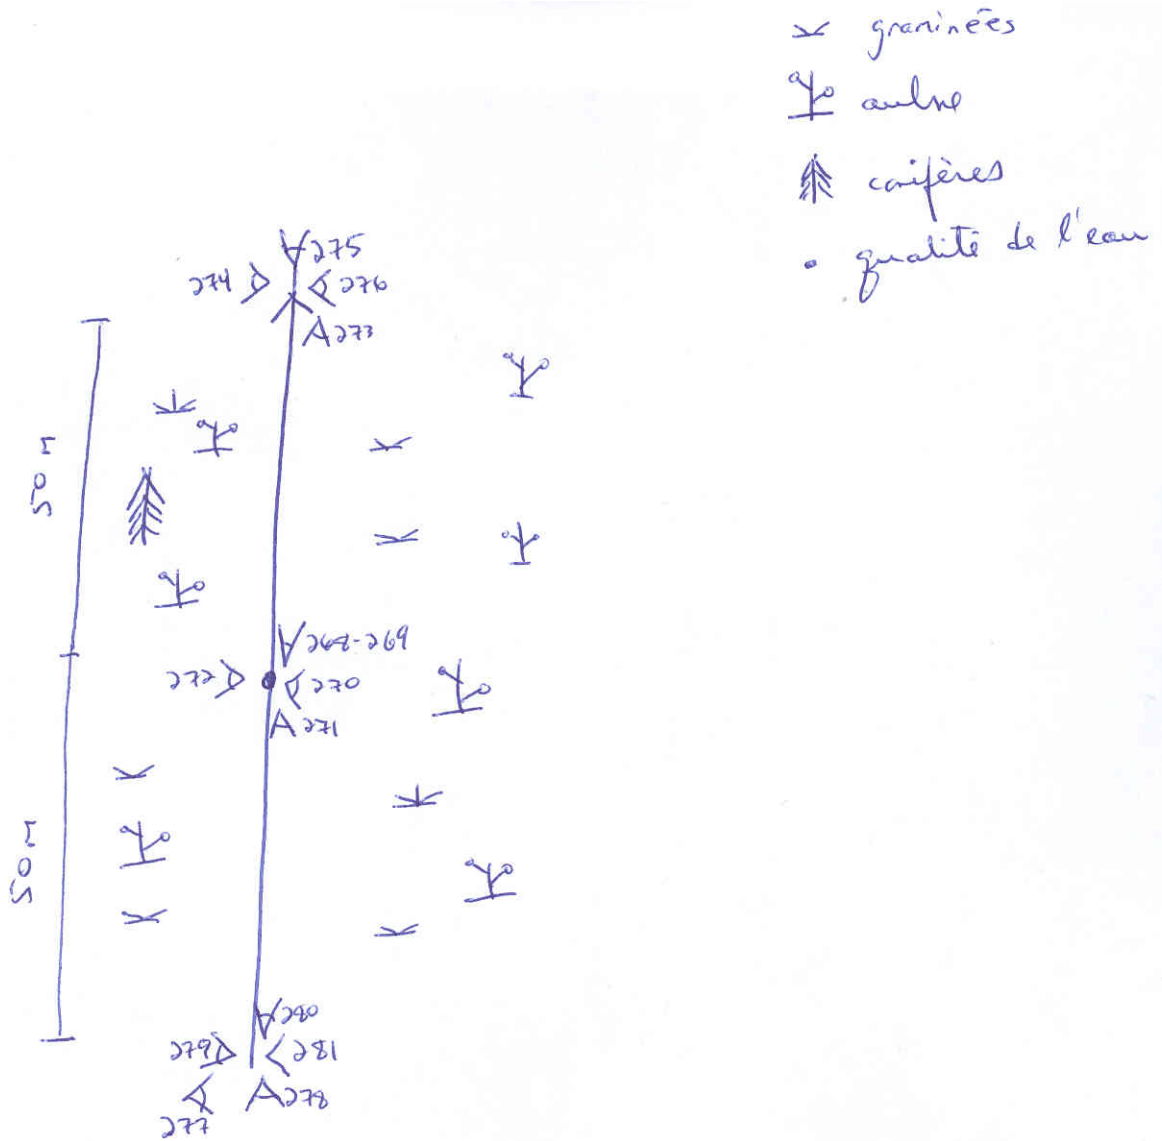 graminées
aulne
conifères
qualité de l'eau
275
274
276
A273
50 m
268-269
272
270
A271
50 m
280
279
281
A278
277